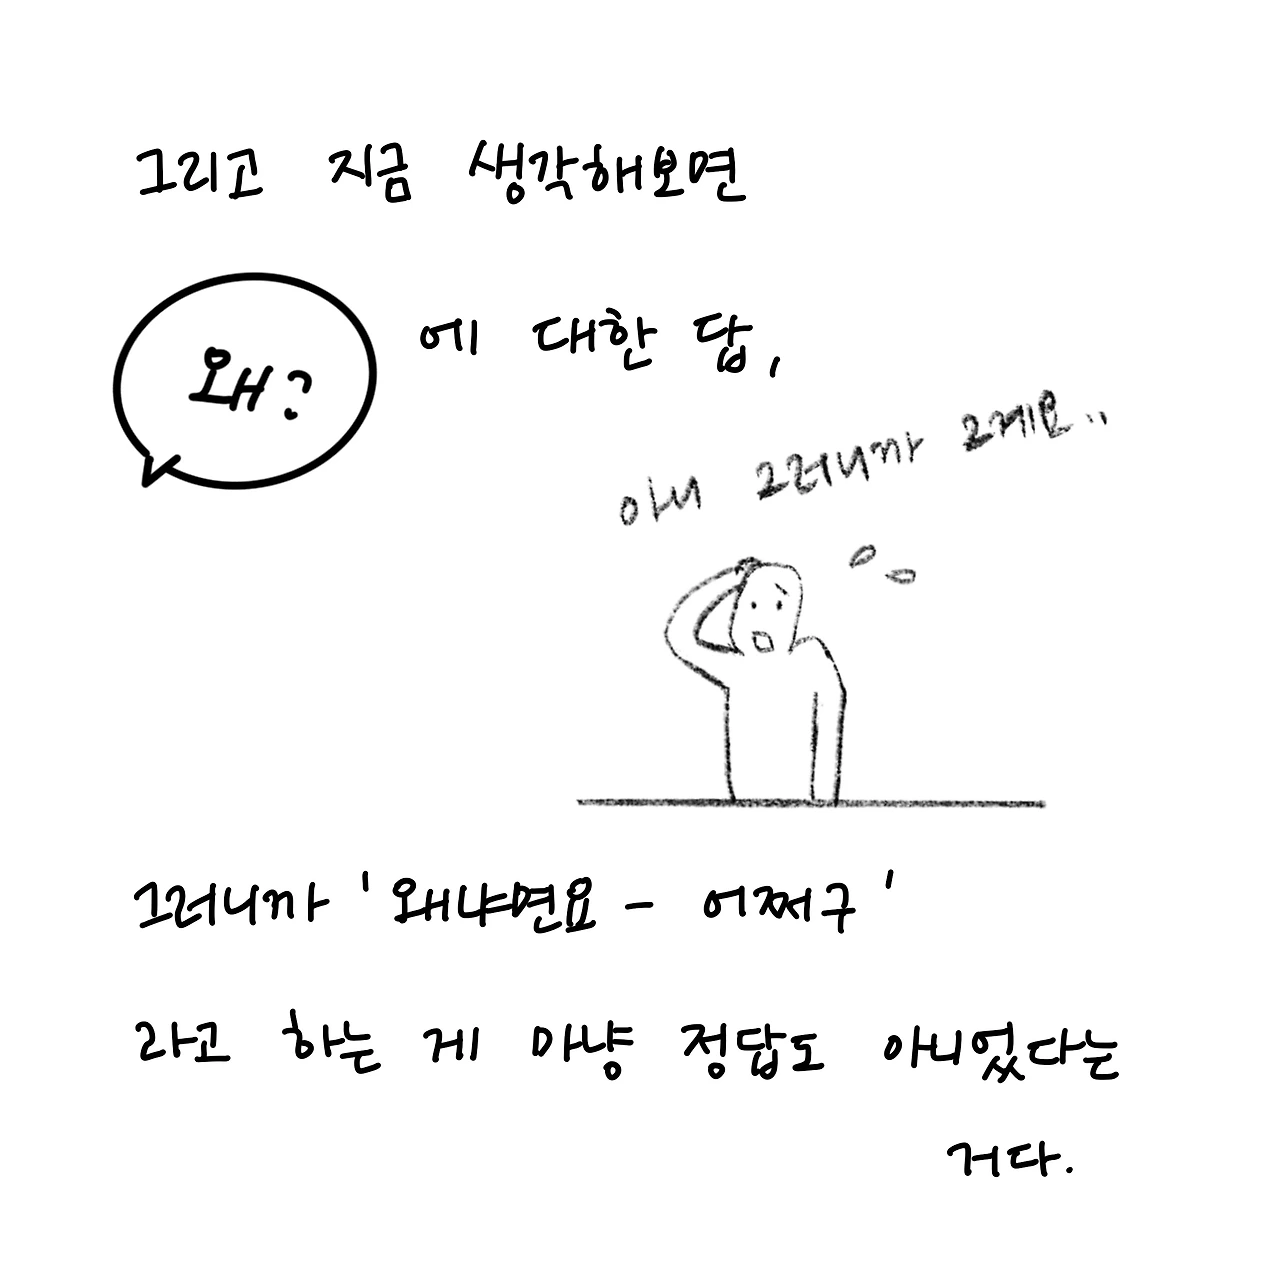 그리고 지금 생각해보면
왜?
에 대한 답,
아니 그러니까 그게요..
그러니까 '왜냐면요 - 어쩌구'
라고 하는 게 마냥 정답도 아니었다는
거다.